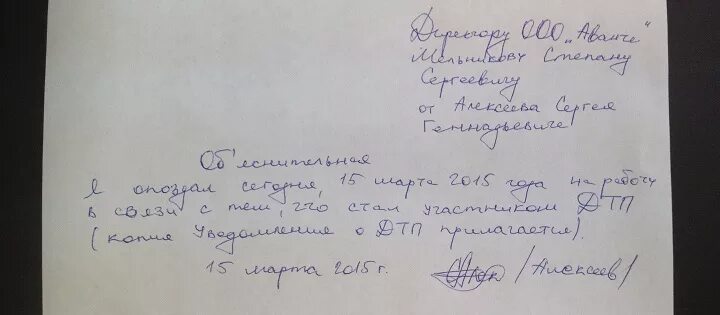 Директору ООО „Аванче"
Мельникову Степану
Сергеевичу
от Алексеева Сергея
Геннадьевиче
Об'яснительная
Я опоздал сегодня, 15 марта 2015 года на работу
в связи с тем, что стал участником ДТП
(копия Уведомления о ДТП прилагается).
15 марта 2015г. /Алексеев/